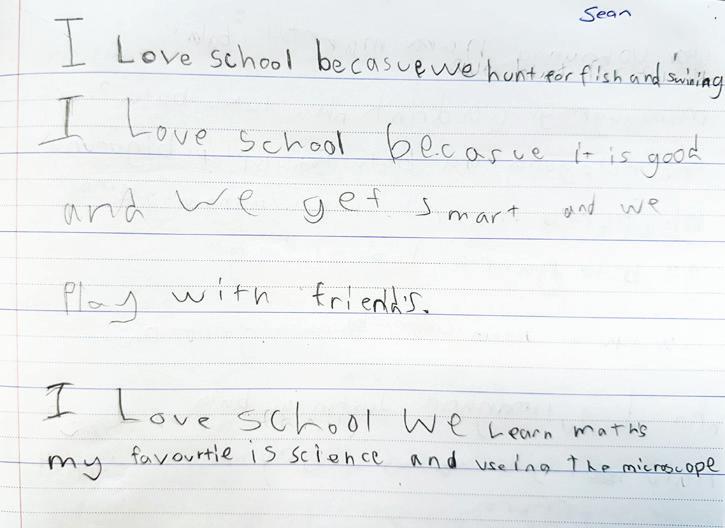 Sean
I Love school becasue we hunt for fish and swining
I Love school becasue it is good
and we get smart and we
Play with friends.
I Love school we Learn maths
my favourtie is science and useing the microscope